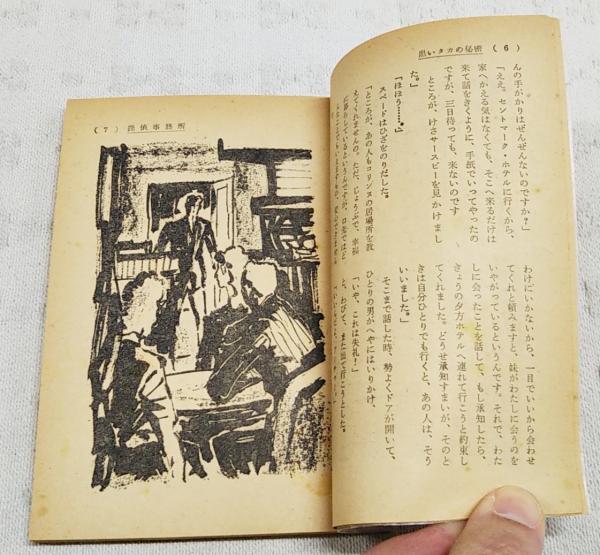 黒いタカの秘密 ( 6 )
んの手がかりはぜんぜんないのですか？」
「ええ。セントマーク・ホテルに行くから、
家へかえる気はなくても、そこへ来るだけは
来て話をきくように、手紙でいってやったの
ですが、三日待っても、来ないのです
ところが、けさサースビーを見かけまし
た。」
「ほほう……。」
スペードはひざをのりだした。
「ところが、あの人もコリンヌの居場所を教
えてくれませんの。ただ、じょうぶで、幸福
に暮らしているというんですが、口先ではど
わけにいかないから、一目でいいから会わせ
てくれと頼みますと、妹がわたしに会うのを
いやがっているというんです。それで、わた
しに会ったことを話して、もし承知したら、
きょうの夕方ホテルへ連れて行こうと約束し
てくれました。どうせ承知すまいが、そのと
きは自分ひとりでも行くと、あの人は、そう
いいました。」
そこまで話した時、勢よくドアが開いて、
ひとりの男がへやにはいりかけ、
「いや、これは失礼！」
と、わびて、また出て行こうとした。
( 7 ) 探偵事務所